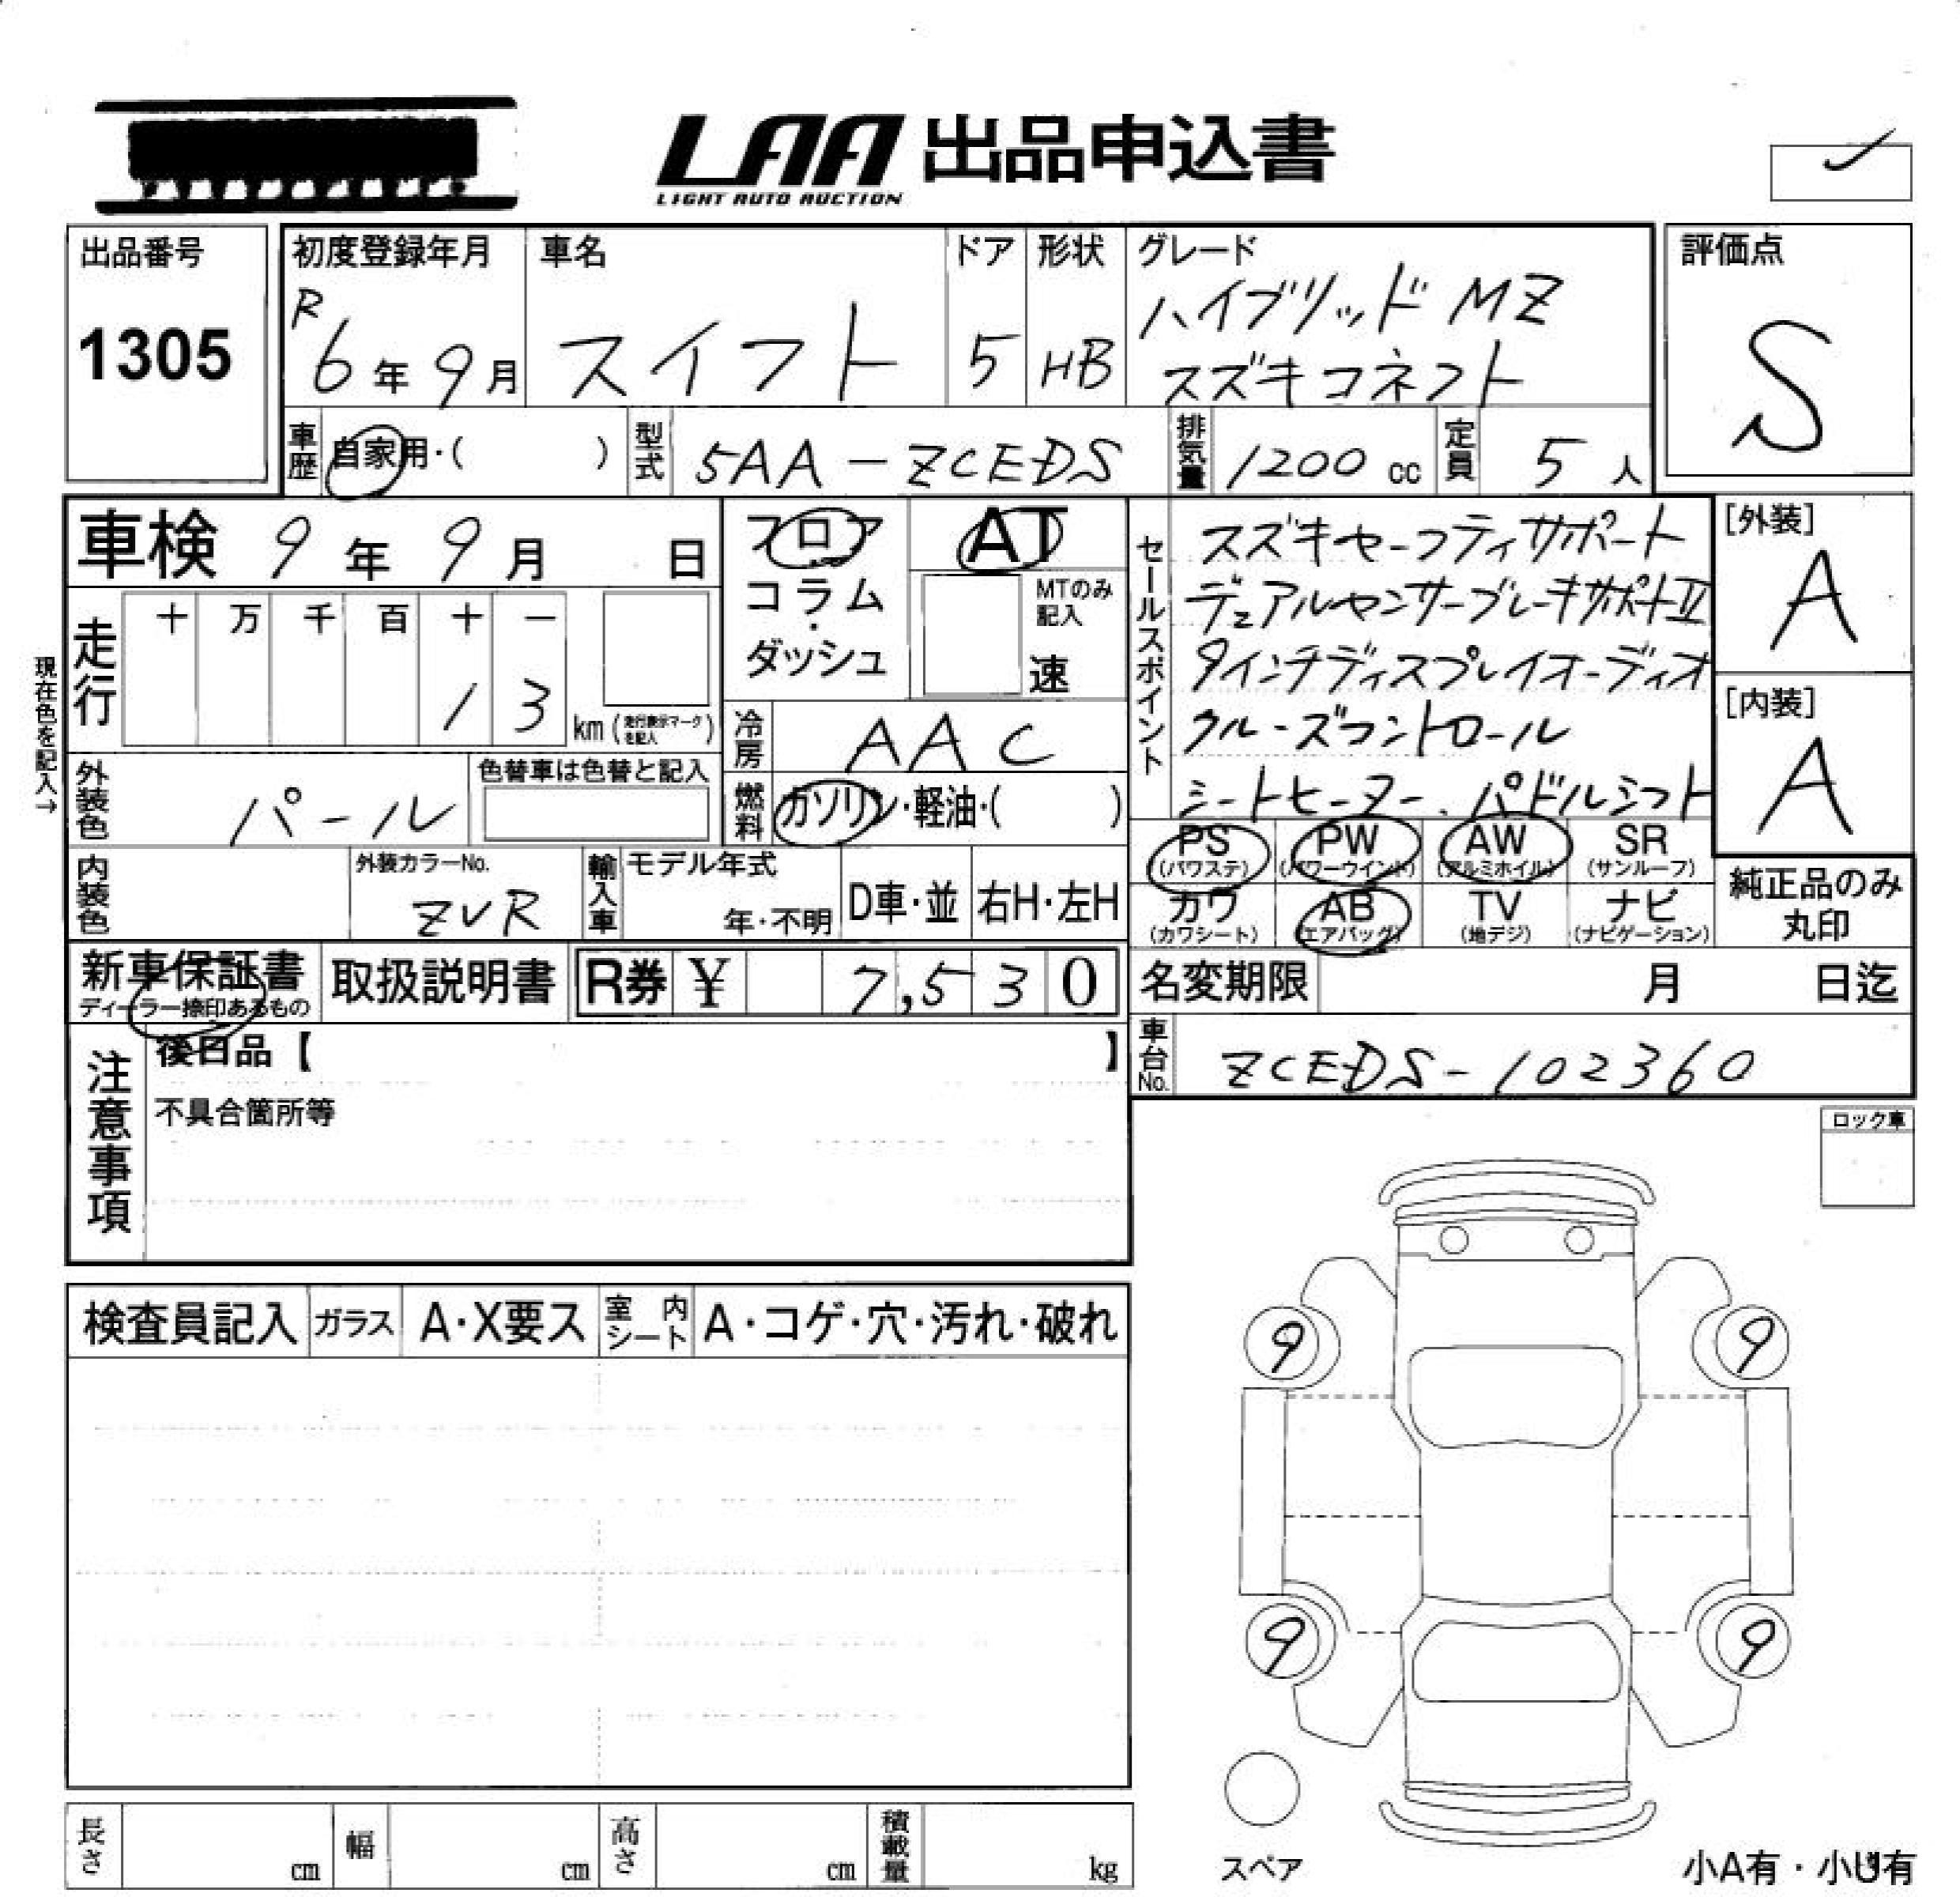 LAA 出品申込書
LIGHT AUTO AUCTION
出品番号
1305
初度登録年月
R
6年9月
車名
スイフト
ドア
5
形状
HB
グレード
ハイブリッド MZ
スズキコネクト
評価点
S
車歴
自家用・( )
型式
5AA-ZCEDS
排気量
1200 cc
定員
5人
車検 9年9月 日
フロア
コラム
・
ダッシュ
AT
MTのみ
記入
速
セールスポイント
スズキセーフティサポート
デュアルセンサーブレーキサポートⅡ
9インチディスプレイオーディオ
クルーズコントロール
シートヒーター、パドルシフト
[外装]
A
[内装]
A
現在色を記入→
走行
十 万 千 百 十 一
1 3
km (走行表示マークを記入)
冷房
AAC
外装色
パール
色替車は色替と記入
燃料
ガソリン・軽油・( )
PS
(パワステ)
PW
(パワーウインド)
AW
(アルミホイル)
SR
(サンルーフ)
カワ
(カワシート)
AB
(エアバッグ)
TV
(地デジ)
ナビ
(ナビゲーション)
純正品のみ
丸印
内装色
外装カラーNo.
ZVR
輸入車
モデル年式
年・不明
D車・並
右H・左H
新車保証書
ディーラー捺印あるもの
取扱説明書
R券 ¥ 7,530
名変期限 月 日迄
注意事項
後日品【 】
不具合箇所等
車台No.
ZCEDS-102360
ロック車
検査員記入
ガラス
A・X要ス
室内シート
A・コゲ・穴・汚れ・破れ
9
9
9
9
スペア
小A有・小U有
長さ cm
幅 cm
高さ cm
積載量 kg